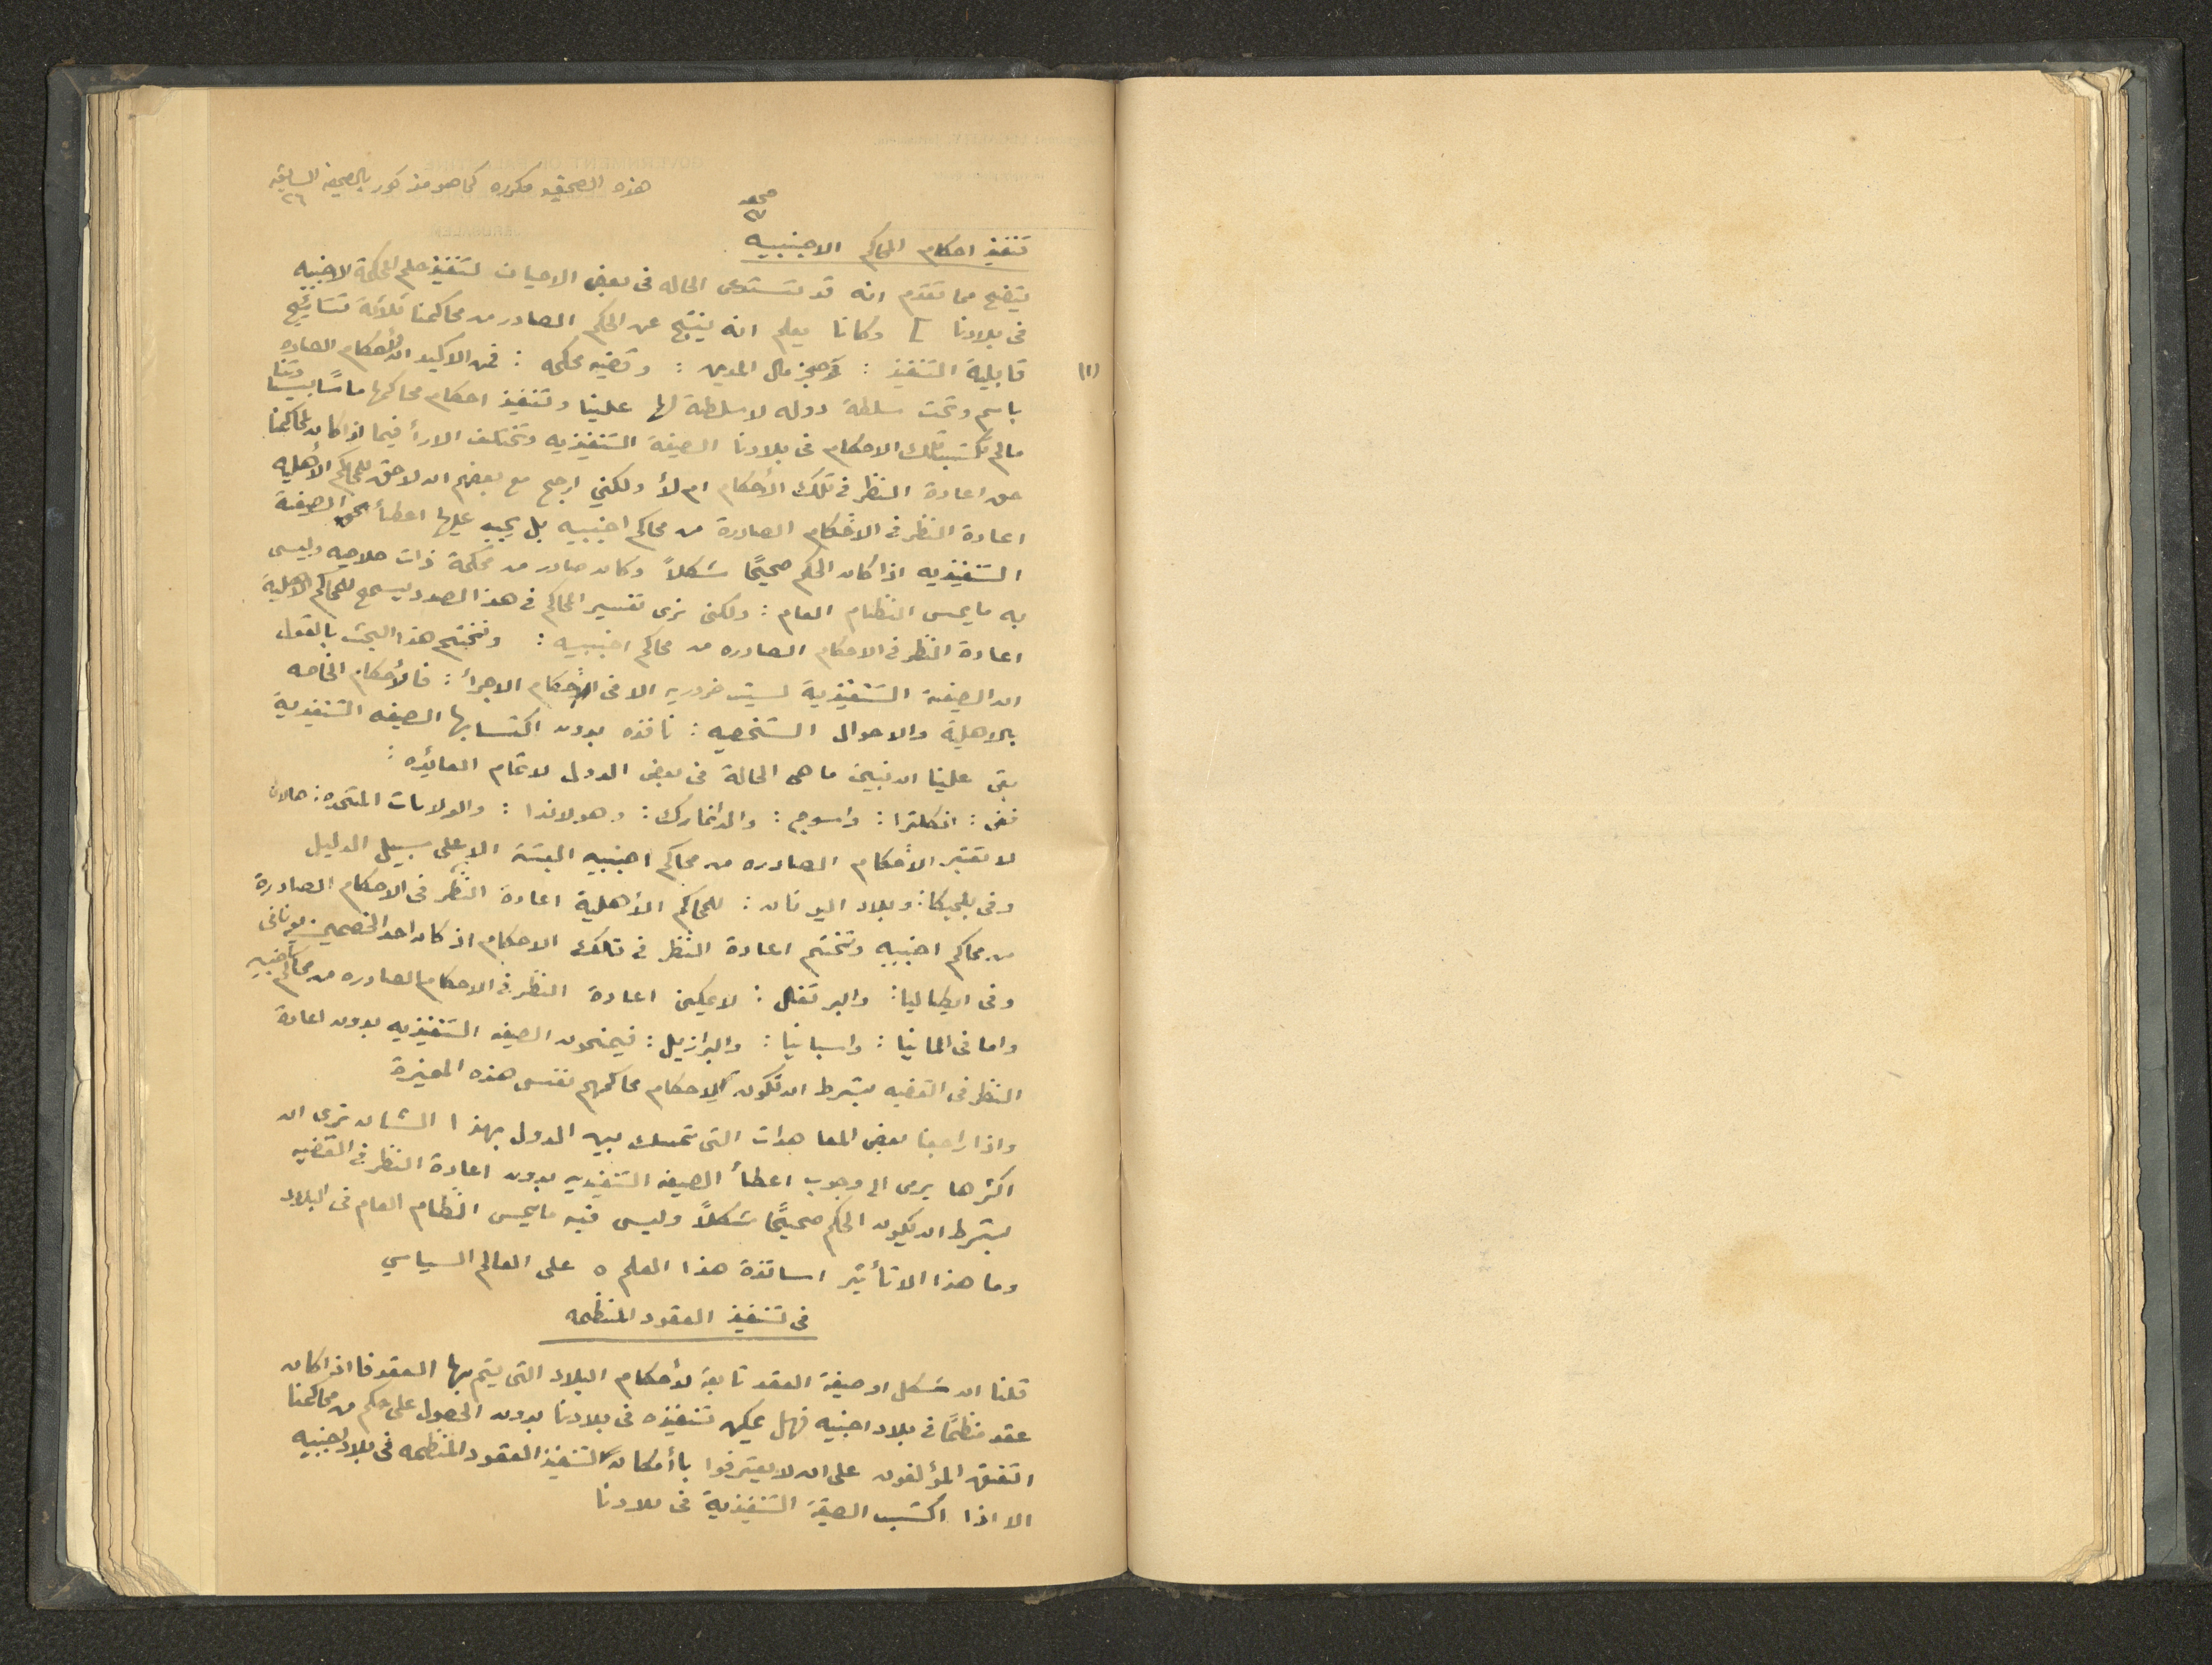 هذه الصحيفه مكرره كما هو مذكور بالصحيفه السابقه
٢٦
صحيفه
٢٧
تنفيذ احكام المحاكم الاجنبيه
يتضح مما تقدم انه قد تستدعى الحاله فى بعض الاحيان لتنفيذ حكم المحكمة الاجنبيه
فى بلادنا وكلنا يعلم انه ينتج عن الحكم الصادر من محاكمنا ثلاثة نتائيج
(١) قابلية التنفيذ : وحجز مال المدين : وقضيه محكمه : فمن الاكيد ان الأحكام الصادره
باسم وتحت سلطة دوله لا سلطة لها علينا وتنفيذ احكام محاكمها ماسًا بسيادتنا
مالم تكتسب تلك الاحكام فى بلادنا الصيغة التنفيذيه وتختلف الارأ فيما اذا كان لمحاكمنا
حق اعادة النظر فى تلك الأحكام ام لأ ولكني ارجح مع بعضهم ان لا حق للمحاكم الأهليه
اعادة النظر فى الاحكام الصادرة من محاكم اجنبيه بل يجب عليها اعطأ الصيغة
التنفيذيه اذا كان الحكم صحيحًا شكلاً وكان صادر من محكمة ذات صلاحيه وليس
به ما يمس النظام العام : ولكن نرى تفسير المحاكم فى هذا الصدد يسمح للمحاكم الاهلية
اعادة النظر فى الاحكام الصادره من محاكم اجنبيه : ونختتم هذا البحث بالقول
ان الصيغة التنفيذية ليست ضروريه الا فى احكام الاجرأ : فالأحكام الخاصه
بالاهلية والاحوال الشخصيه : نافذه بدون اكتسابها الصيغه التنفيذية
بقى علينا ان نبين ما هى الحالة فى بعض الدول لاتمام الفائده :
ففى : انكلترا : واسوج : والدانمارك : وهولاندا : والولايات المتحده : حالان
لا تعتبر الأحكام الصادره من محاكم اجنبيه البتة الا على سبيل الدليل
وفى بلجيكا : وبلاد اليونان : للمحاكم الأهلية اعادة النظر فى الاحكام الصادرة
من محاكم اجنبيه وتختم اعادة النظر فى تلك الاحكام اذ كان احد الخصمين يونانى
وفى ايطاليا : والبرتغال : لا يمكن اعادة النظر فى الاحكام الصادره من محاكم اجنبيه
واما فى المانيا : واسبانيا : والبرازيل : فيمنحون الصيغه التنفيذيه بدون اعادة
النظر فى القضيه بشرط ان تكون لاحكام محاكمهم نفس هذه الميزة
واذا راجعنا بعض المعاهدات التى تمسك بين الدول بهذا الشان نرى ان
اكثرها يرمى الى وجوب اعطأ الصيغه التنفيذيه بدون اعادة النظر فى القضيه
بشرط ان يكون الحكم صحيحًا شكلاً وليس فيه ما يمس النظام العام فى البلاد
وما هذا الا تأثير اساتذة هذا العلم ٥ على العالم السياسي
فى تنفيذ العقود المنظمه
قلنا ان شكل او صيغة العقد تابعة لأحكام البلاد التى يتم بها العقد فااذا كان
عقد منظمًا فى بلاد اجنبيه فهل يمكن تنفيذه فى بلادنا بدون الحصول على حكم من محاكمنا
اتفق المؤلفون على ان لا يعترفوا باأمكان لتنفيذ العقود المنظمه فى بلاد اجنبيه
الا اذا اكتسب الصيغة التنفيذية فى بلادنا